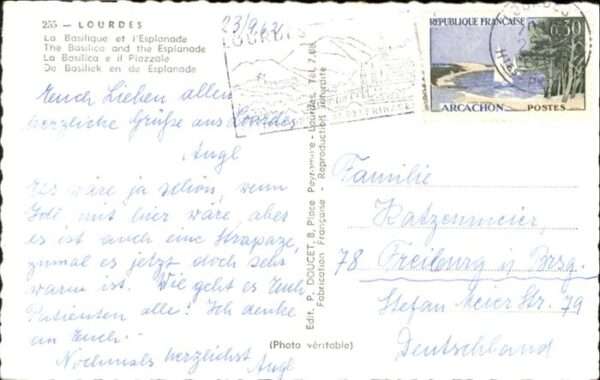 255 - LOURDES
La Basilique et l'Esplanade
The Basilica and the Esplanade
La Basilica e il Piazzale
De Basiliek en de Esplanade
23/9.62
LOURDES
RÉPUBLIQUE FRANÇAISE
0,30
ARCACHON POSTES
Euch Lieben allen
herzliche Grüße aus Lourdes
Angl
Es wäre ja schön, wenn
mit hier wäre, aber
es ist auch eine Strapaze,
zumal es jetzt doch sehr
warm ist. Wie geht es Euch
Patienten alle? Ich denke
an Euch.
Nochmals herzlichst
Angl
(Photo véritable)
Edit. P. DOUCET, 8, Place Peyramale - Lourdes. Tél. 7.08
Fabrication Française - Reproduction interdite
Familie
Katzenmeier,
78 Freiburg i. Brsg.
Stefan Meier Str. 79
Deutschland